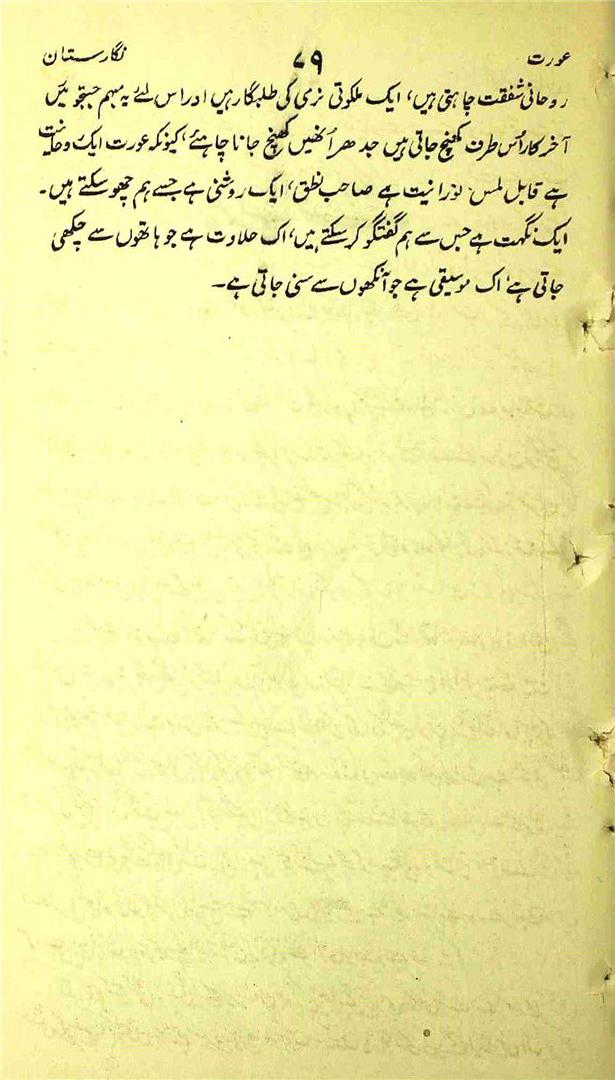 عورت ۷۹ نگارستان
روحانی شفقت چاہتی ہیں، ایک ملکوتی نرمی کی طلبگار ہیں اور اس لئے یہ مبہم جستجوئیں
آخر کار اُس طرف کھنچ جاتی ہیں جدھر اُنھیں کھنچ جانا چاہئے، کیونکہ عورت ایک روحانیت
ہے قابل لمس، نورانیت ہے صاحب نطق، ایک روشنی ہے جسے ہم چھو سکتے ہیں۔
ایک نگہت ہے جس سے ہم گفتگو کر سکتے ہیں، اک حلاوت ہے جو ہاتھوں سے چکھی
جاتی ہے، اک موسیقی ہے جو آنکھوں سے سنی جاتی ہے۔